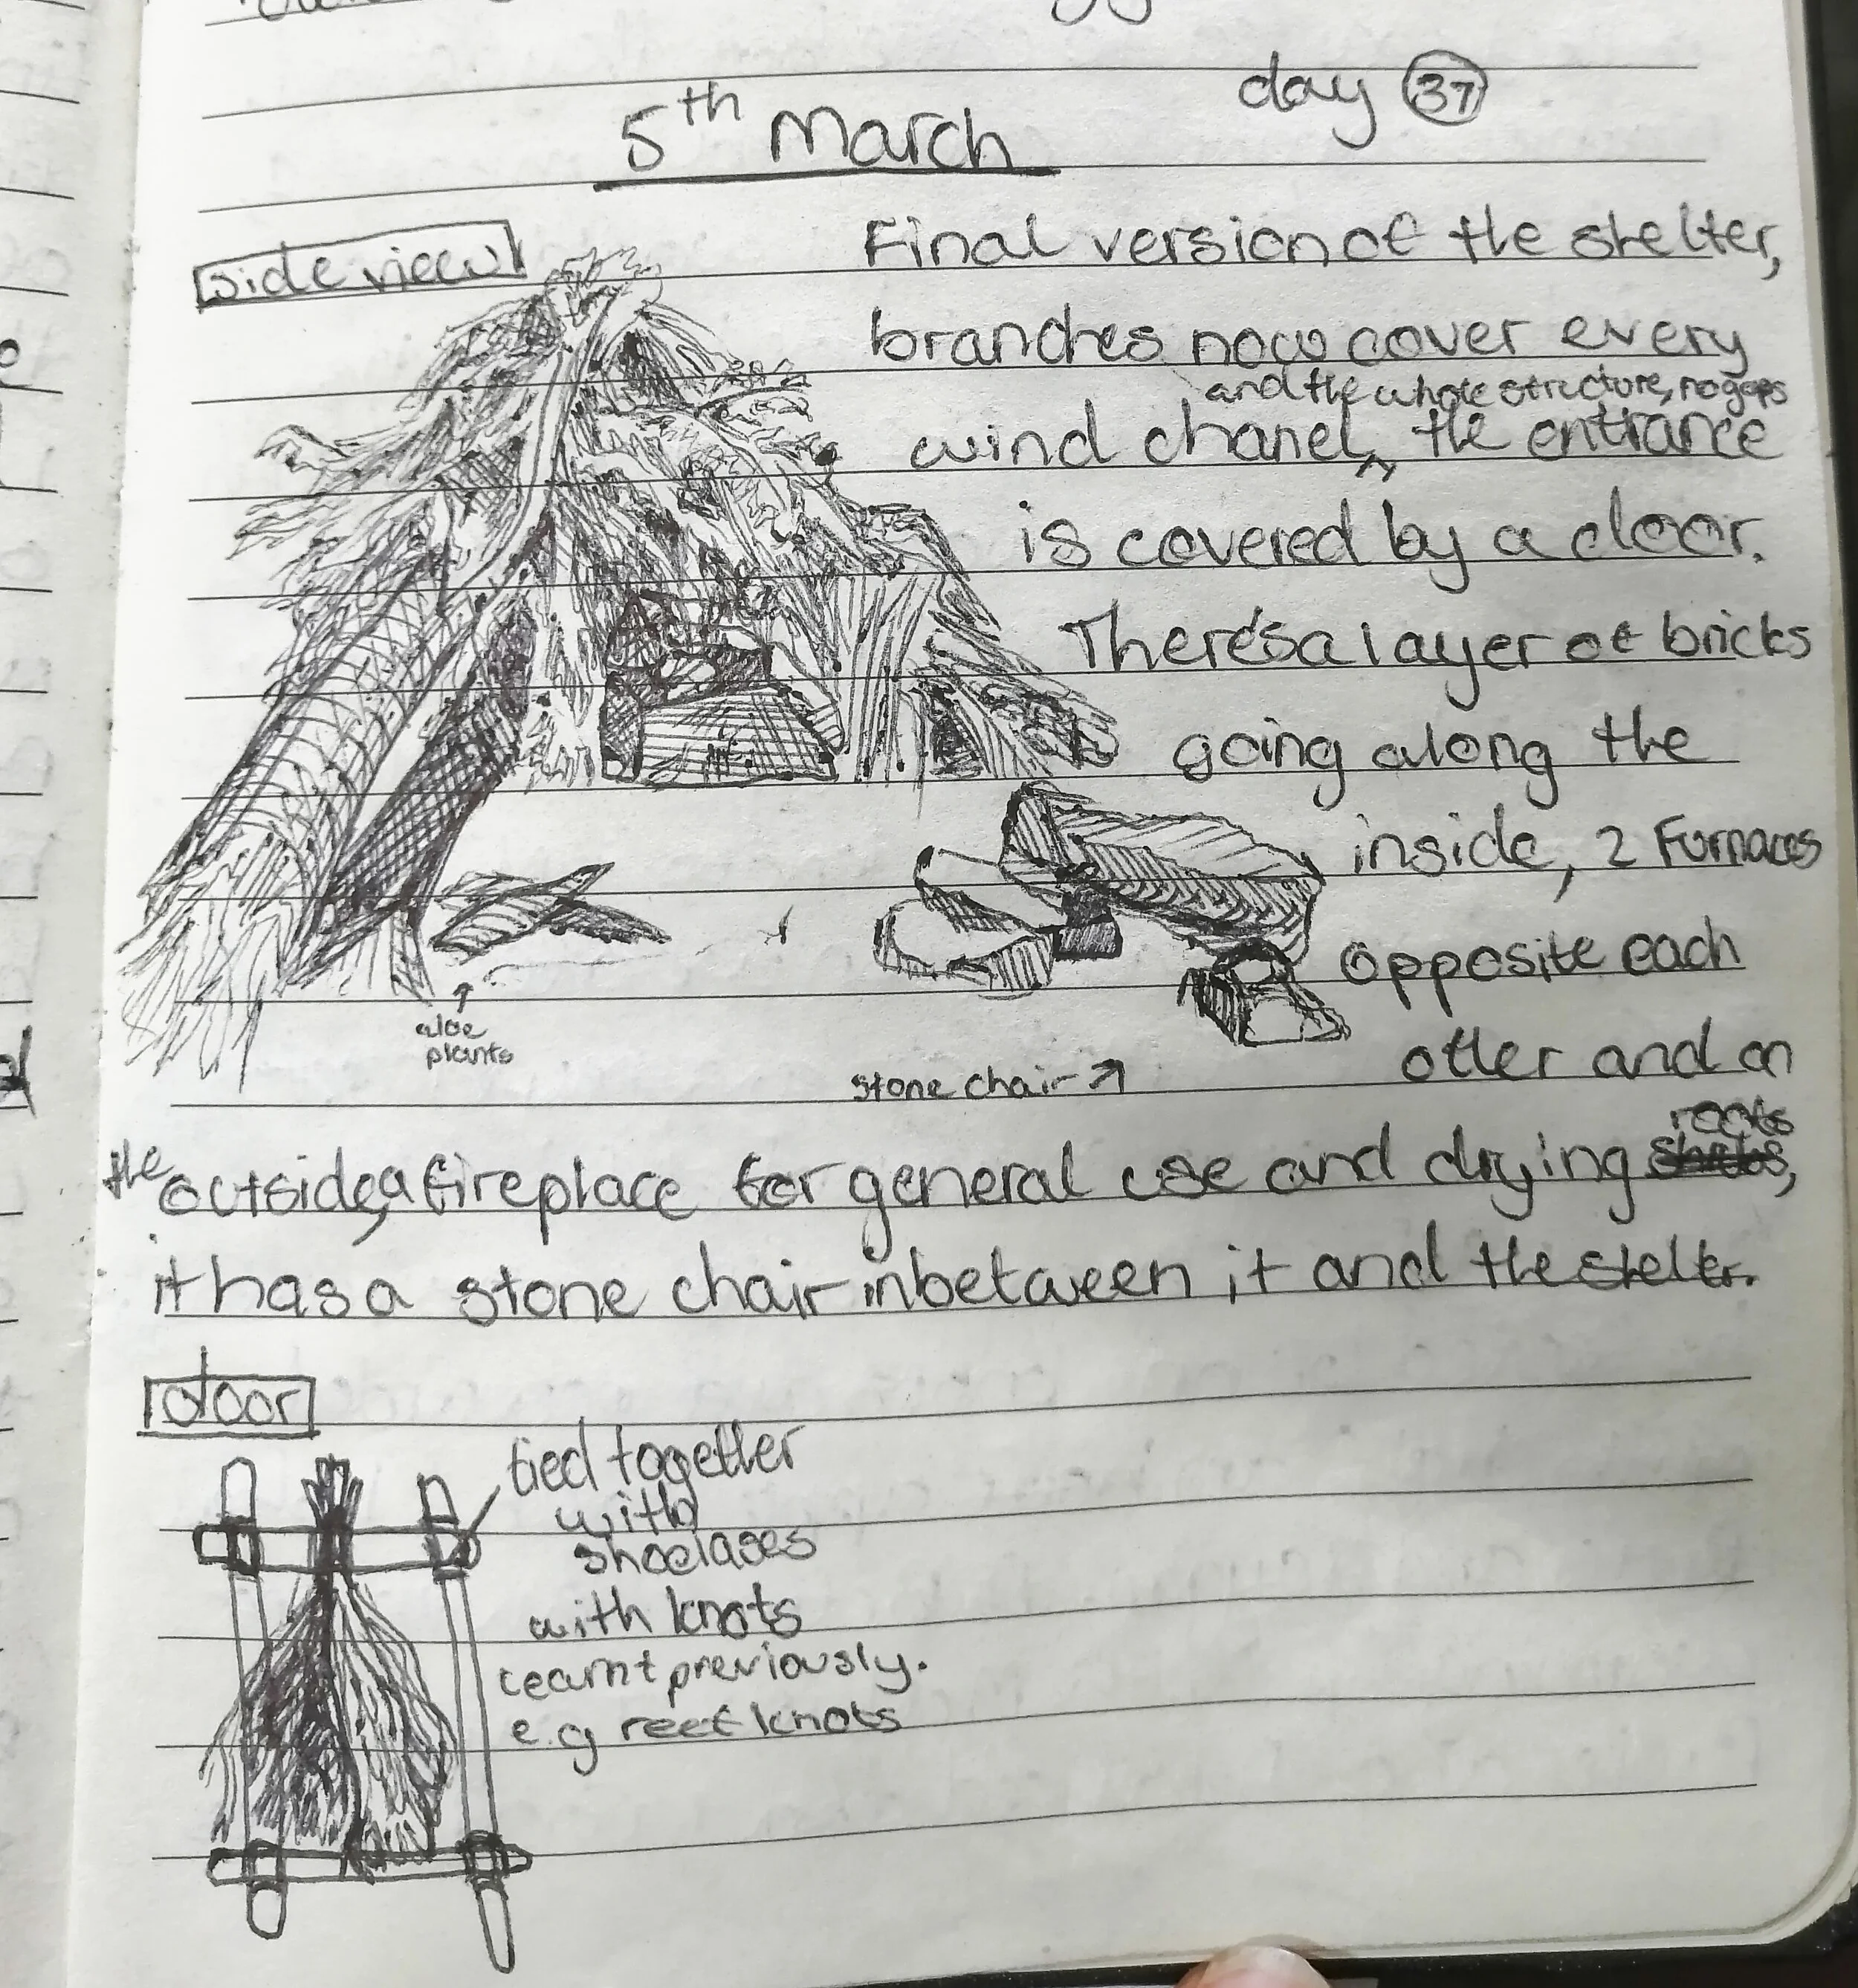 day 37
5th March
side view
Final version of the shelter,
branches now cover every
and the whole structure, no gaps
wind chanel, the entrance
is covered by a door.
There's a layer of bricks
going along the
inside, 2 Furnaces
opposite each
other and on
aloe
plants
stone chair
roots
the outside, a fireplace for general use and drying
it has a stone chair inbetween it and the shelter.
door
tied together
with
shoelases
with knots
learnt previously.
e.g reef knots